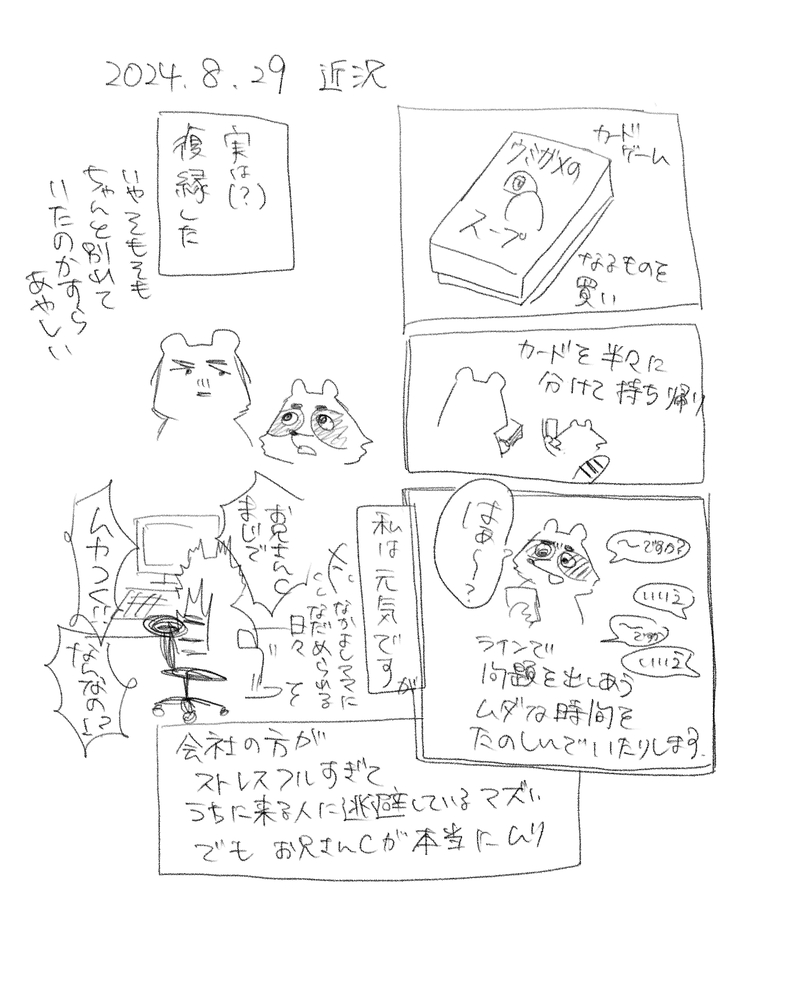 2024.8.29 近況
カード
ゲーム
ウミガメの
スープ
なるものを
買い
カードを半々に
分けて持ち帰り
はぁ〜?
〜ですか?
いいえ
〜ですか
いいえ
ラインで
問題を出しあう
ムダな時間を
たのしんでいたりします.
実は(?)
復縁した
いやそもそも
ちゃんと別れて
いたのかすら
あやしい
私は元気ですが
なかよしママに
なだめられる
日々 そ
お兄さんC
まじで
ムカつくだ
ならなの!?
会社の方が
ストレスフルすぎて
うちに来る人に逃避しているマズい
でもお兄さんCが本当にムリ